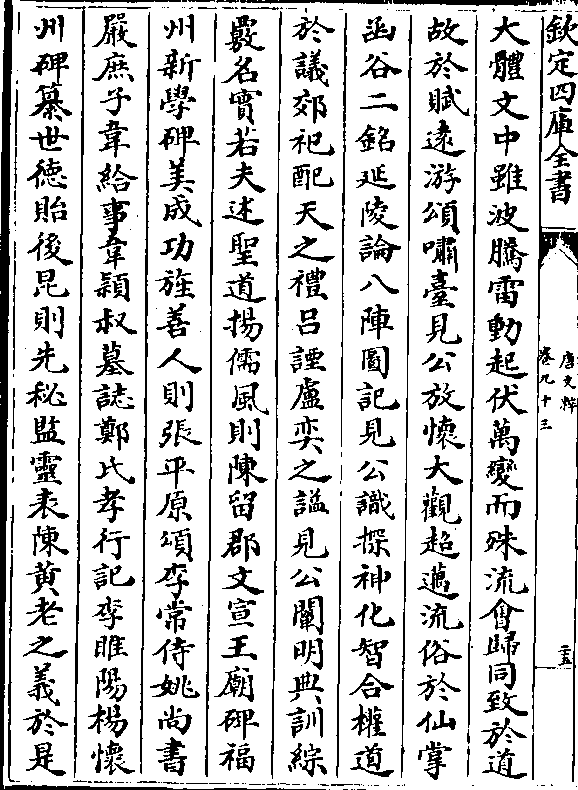 欽定四庫全書
唐文粹
卷九十三
二五
大體文中雖波騰雷動起伏萬變而殊流會歸同致於道
故於賦遠游頌嘯臺見公放懷大觀超邁流俗於仙掌
函谷二銘延陵論八陣圖記見公識探神化智合權道
於議郊祀配天之禮吕諲盧奕之諡見公闡明典訓綜
覈名實若夫述聖道揚儒風則陳留郡文宣王廟碑福
州新學碑美成功旌善人則張平原頌李常侍姚尚書
嚴庶子韋給事韋潁叔墓誌鄭氏孝行記李睢陽楊懷
州碑纂世徳貽後昆則先秘監靈表陳黄老之義於是